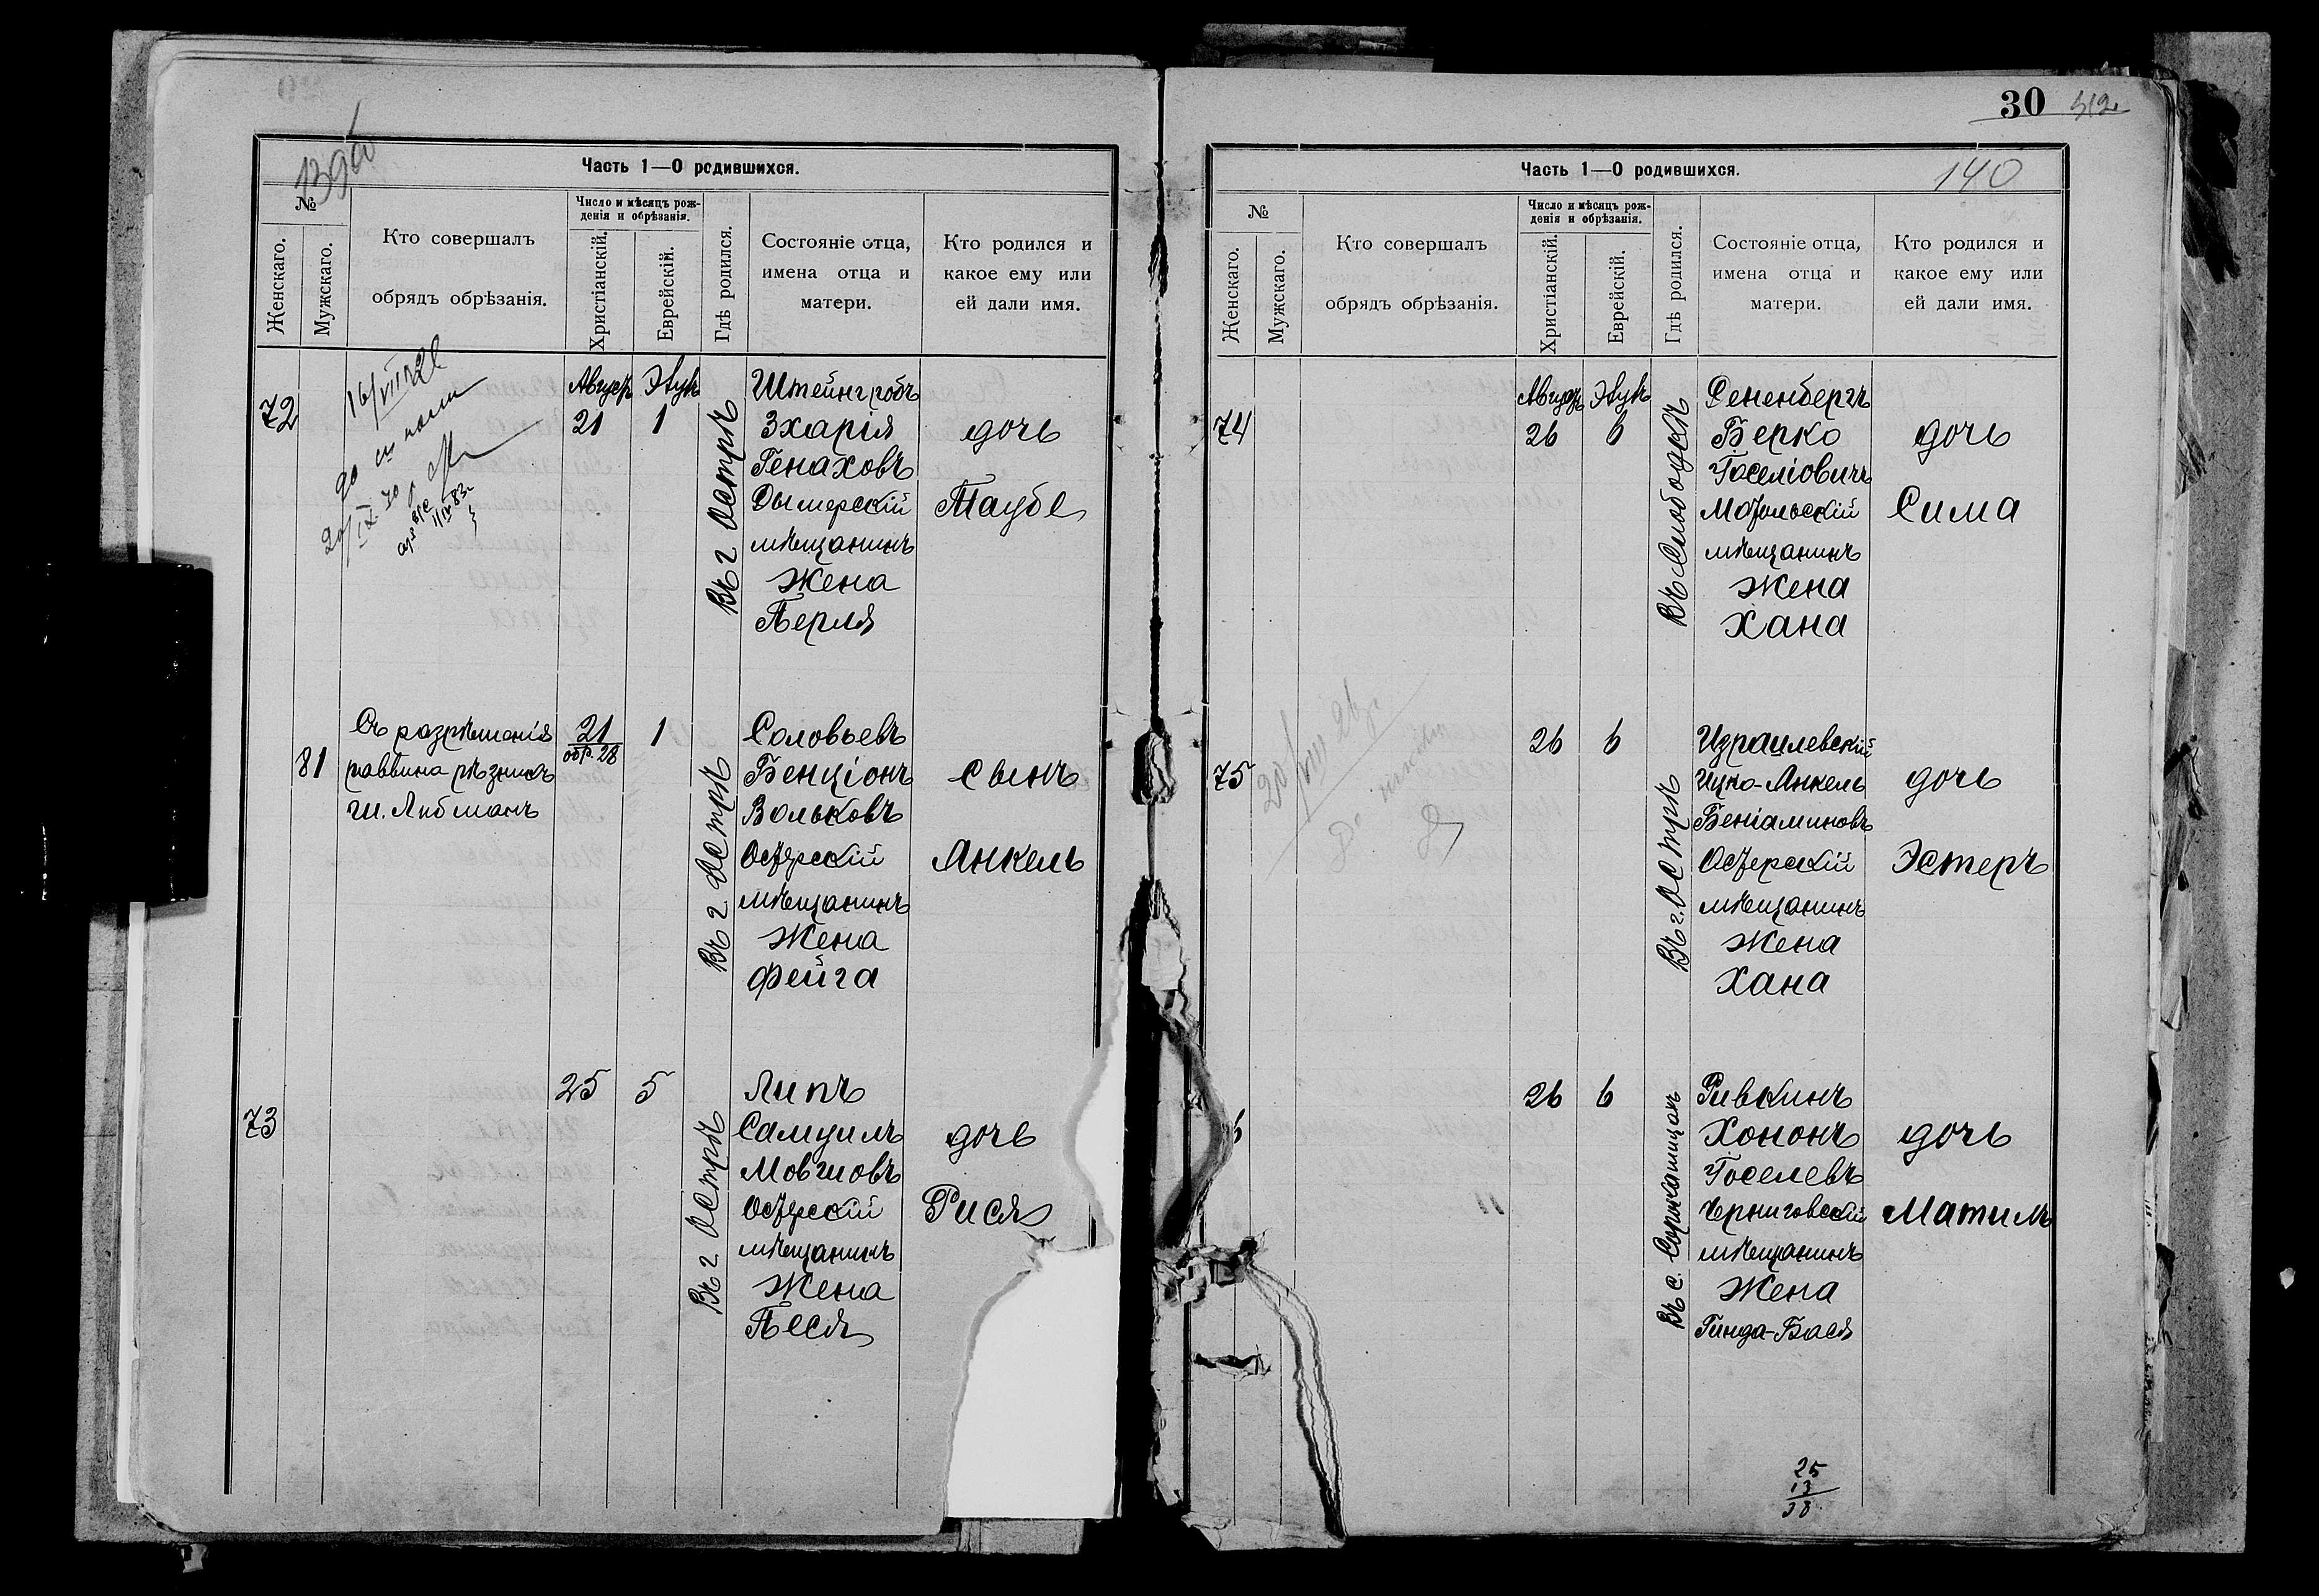 139об
Часть 1—О родившихся.
№
Женскаго.
Мужскаго.
Кто совершалъ
обрядъ обрѣзанія.
Число и мѣсяцъ рож-
денія и обрѣзанія.
Христіанскій.
Еврейскій.
Гдѣ родился.
Состояніе отца,
имена отца и
матери.
Кто родился и
какое ему или
ей дали имя.
72
Августъ
21
Элулъ
1
Въ г Острѣ
Штейнгробъ
Зхарія
Генаховъ
Дымерскій
мѣщанинъ
Жена
Перля
дочь
Таубе
81
Съ разрѣшенія
раввина рѣзникъ
Ш. Либманъ
21
обр. 28
1
Въ г Острѣ
Соловьевъ
Бенціонъ
Вольковъ
Остерскій
мѣщанинъ
Жена
Фейга
сынъ
Янкель
73
25
5
Въ г Острѣ
Липъ
Самуилъ
Мовшовъ
Остерскій
мѣщанинъ
Жена
Песя
дочь
Рися
30
140
Часть 1—О родившихся.
№
Женскаго.
Мужскаго.
Кто совершалъ
обрядъ обрѣзанія.
Число и мѣсяцъ рож-
денія и обрѣзанія.
Христіанскій.
Еврейскій.
Гдѣ родился.
Состояніе отца,
имена отца и
матери.
Кто родился и
какое ему или
ей дали имя.
74
Августъ
26
Элулъ
6
Въ Слободкѣ
Сененбергъ
Берко
Іоселіовичъ
мѣщанинъ
Жена
Хана
дочь
Сима
75
26
6
Въ г. Острѣ
Израилевскій
Ицко-Янкель
Беніаминовъ
Остерскій
мѣщанинъ
Жена
Хана
дочь
Эстеръ
6
26
6
Въ с.
Ривкинъ
Хононъ
Іоселевъ
Черниговскій
мѣщанинъ
Жена
Гинда-Бася
дочь
Матиль
25
13
38